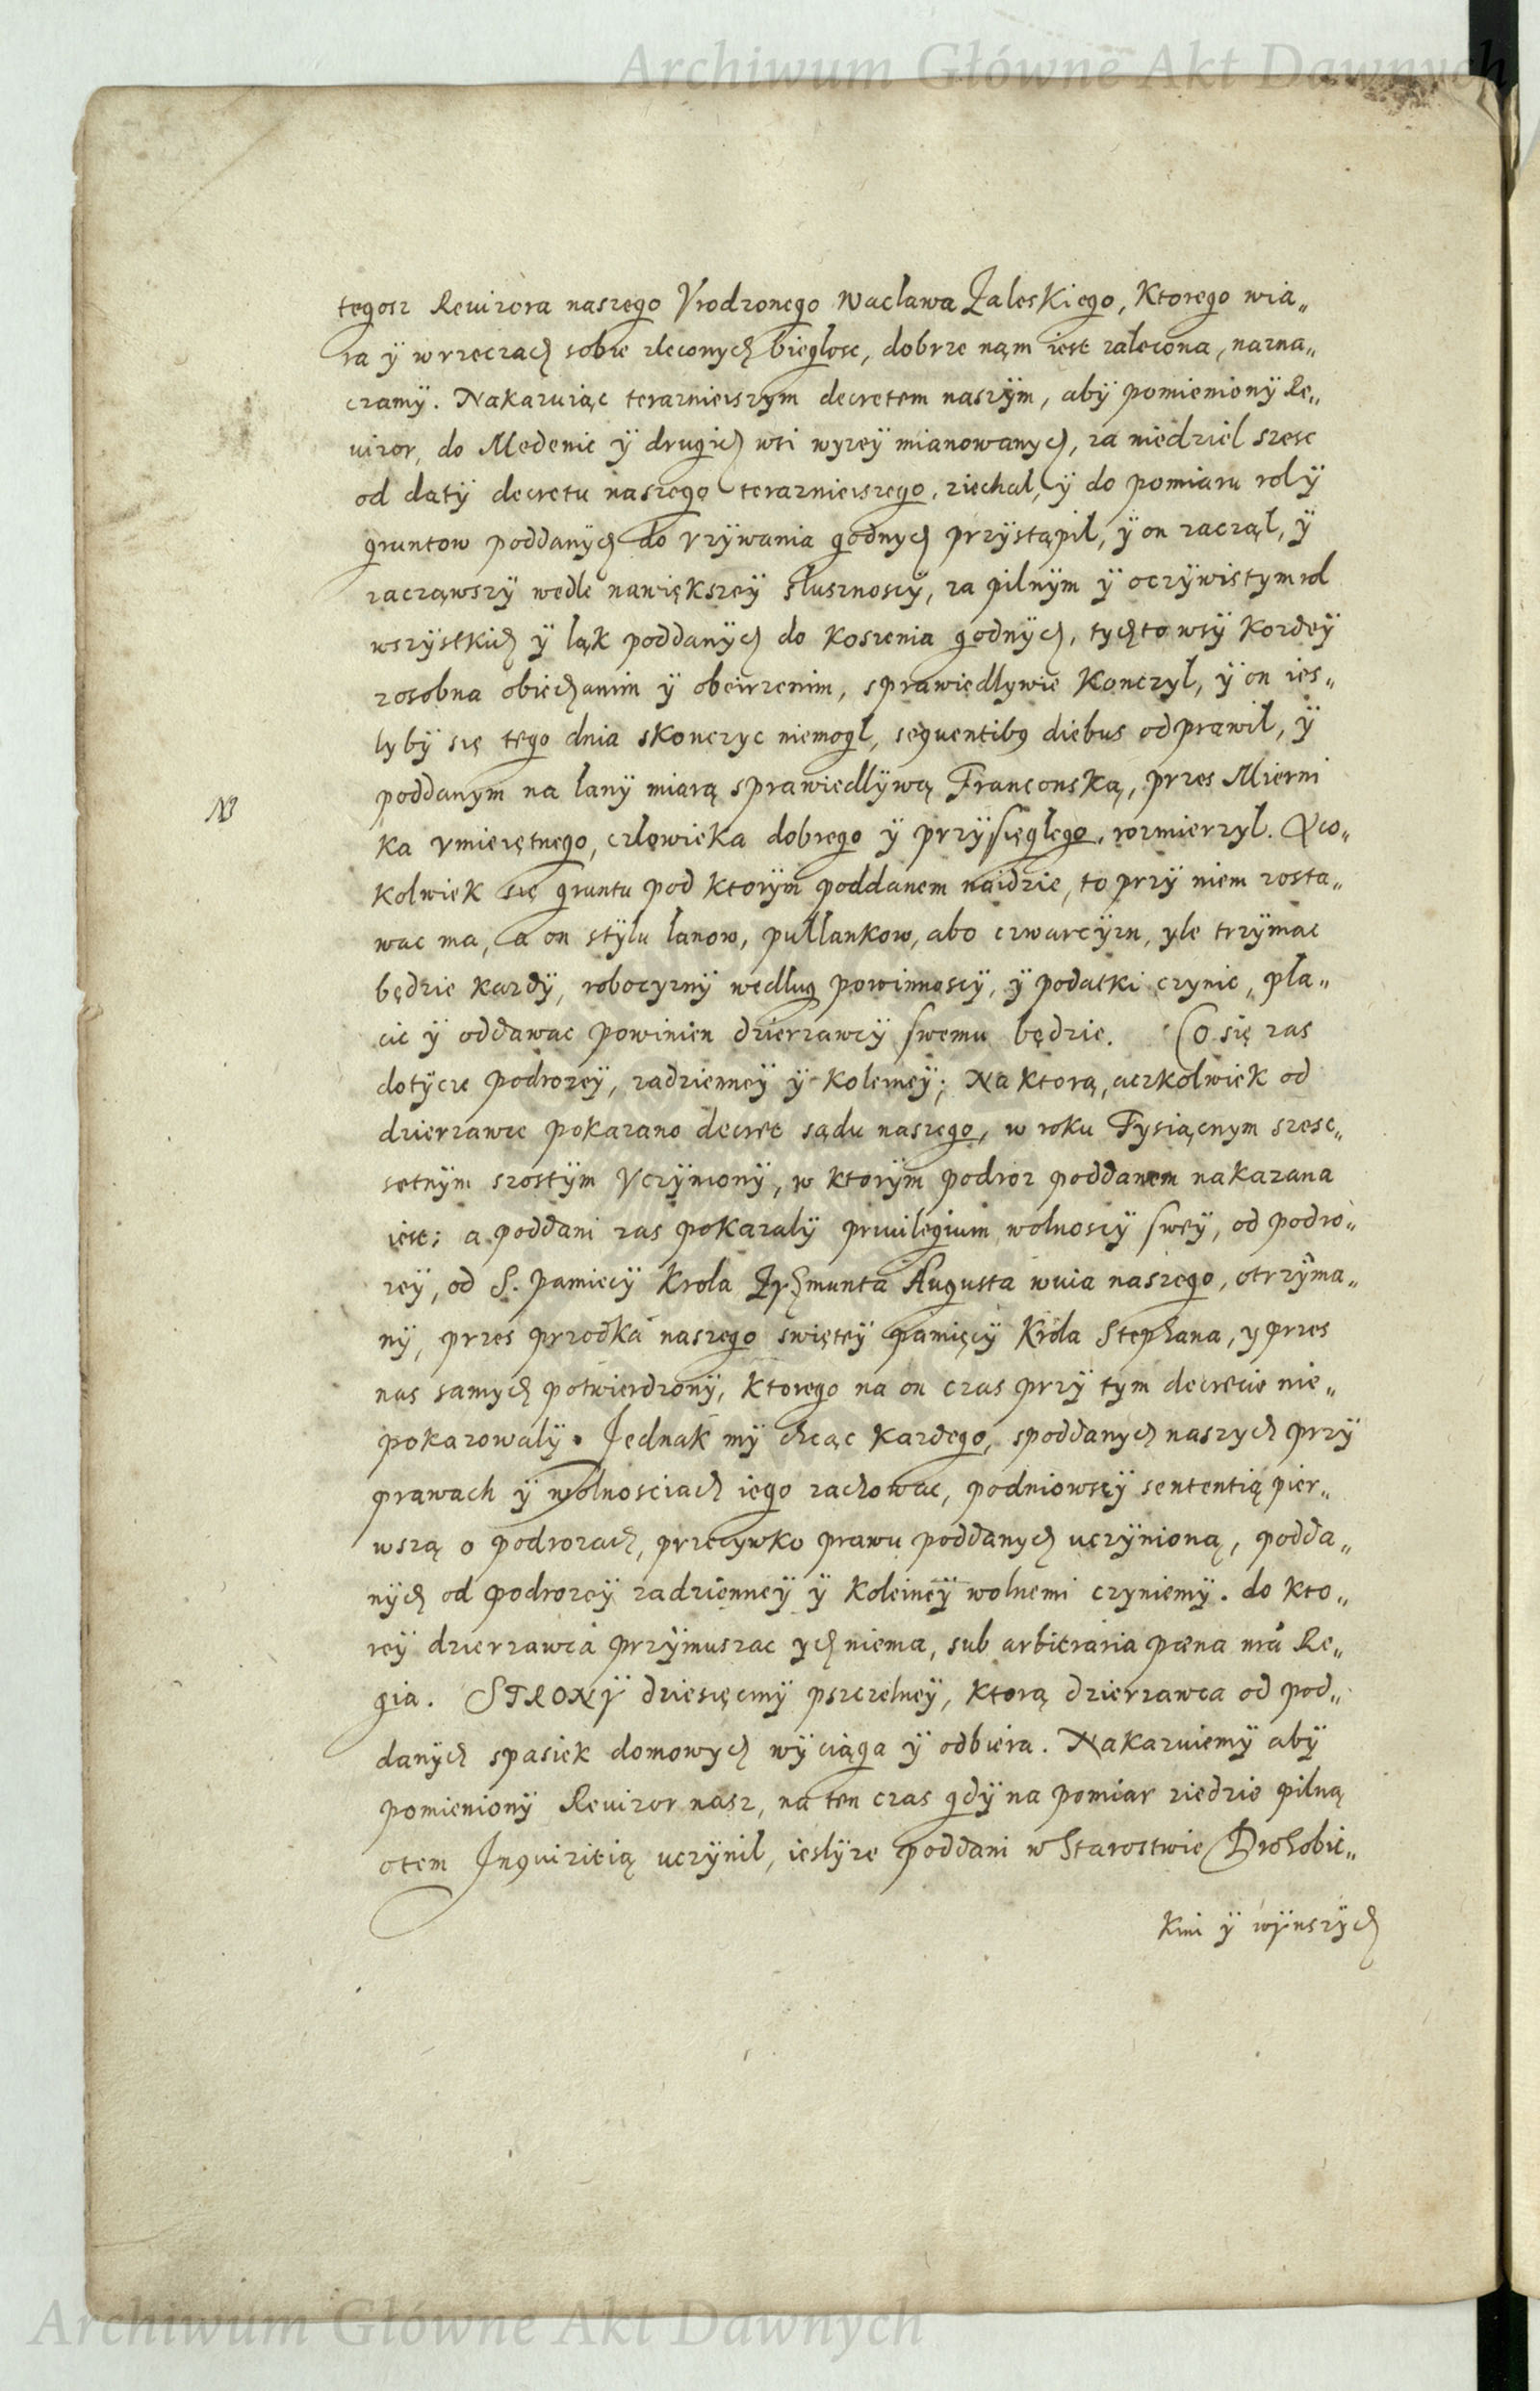 Archiwum Główne Akt Dawnych
tegosz Rewizora naszego Vrodzonego Wacława Zaleskiego, Ktorego wia„
ra ÿ w rzeczach sobie zleconych biegłosc, dobrze nąm iest zalecona, nazna„
czamÿ. Nakazuiąc teraznieiszym decretem naszÿm, abÿ pomienionÿ Re„
uizor, do Medenic ÿ drugich wsi wyzeÿ mianowanych, za niedziel szesc
od datÿ decretu naszego terazneiszego, ziechal, ÿ do pomiaru rol ÿ
gruntow poddanÿch do vzÿwania godnych przÿstąpil, ÿ on zacząl, ÿ
zacząwszÿ wedle nawiększeÿ słusznoscÿ, za pilnÿm ÿ oczÿwistym rol
wszÿstkich ÿ ląk poddanÿch do koszenia godnÿch, tÿch to wsÿ kozdeÿ
zosobna obiechanim ÿ obeirzenim, sprawiedlywie Konczyl, ÿ on ies„
lybÿ się tego dnia skonczyc niemogl, sequentibus diebus odprawil, ÿ
poddanym na lanÿ miarą sprawiedlÿwą Franconską, przes Mierni
NB
ka vmieiętnego, człowieka dobrego ÿ przÿsięglego, rozmierzyl. A co„
kolwiek się gruntu pod ktorÿm poddanem naidzie, to przÿ niem zosta„
wac ma, a on stÿlu lanow, pullankow, abo czwarcÿzn, yle trzÿmac
będzie kazdÿ, robocyznÿ według powinnoscÿ, ÿ podatki czynic, pla„
cic ÿ oddawac powinien dzierzawcÿ swemu będzie. Co się zas
dotÿcze podrozeÿ, zadzienneÿ ÿ koleineÿ; Na ktorą, aczkolwiek od
dzierzawce pokazano decret sądu naszego, w roku Tysiącnym szesc„
setnÿm szostÿm vczÿnionÿ, w ktorÿm podroz poddanem nakazana
iest; a poddani zas pokazalÿ priuilegium wolnoscÿ sweÿ, od podro„
zeÿ, od S. Pamiecÿ Krola Zÿgmunta Augusta wuia naszego, otrzÿma„
nÿ, przes przodka naszego swięteÿ pamięcÿ Krola Stephana, y przes
nas samych potwierdzonÿ, Ktorego na on czas przÿ tym decrecie nie„
pokazowalÿ. Jednak mÿ chcąc kazdego, spoddanych naszych przÿ
prawach ÿ wolnosciach iego zachowac, podniowszÿ sententią pier„
wszą o podrozach, przecywko prawu poddanych uczÿnioną, podda„
nÿch od podrozeÿ zadzienneÿ ÿ koleineÿ wolnemi czyniemÿ. do kto„
reÿ dzierzawca przÿmuszac ych niema, sub arbitraria pœna nrã Re„
gia. STRONÿ dziesięcinÿ pszczelneÿ, ktorą dzierzawca od pod„
danÿch spasiek domowych wÿciąga ÿ odbiera. Nakazuiemÿ abÿ
pomienionÿ Reuizor nasz, na ten czas gdÿ na pomiar ziedzie pilną
otem Inquizitią uczÿnil, ieslÿze poddani w Starostwie Drohobic„
kim ÿ wÿnszÿch
Archiwum Główne Akt Dawnych